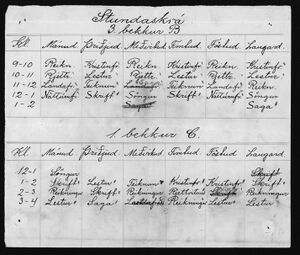 Stundaskrá
3. bekkur B
Kl. Mánud Þriðjud Miðvikud Fimtud Föstud Laugard.
9-10 Reikn Kristinfr Reikn Kristinfr Reikn Kristinfr
10-11 Rjettr Lestur Rjettr Lestur Rjettr Lestur
11-12 Landafr Teiknun Teiknun Landafr Reikn
12-1 Náttúrufr Skrift Söngur Náttúrufr Skrift Söngur
1-2 Saga Saga
1. bekkur C.
Kl. Mánud Þriðjud Miðvikud Fimtud Föstud Laugard.
12-1 Söngur Skrift
1-2 Skrift Lestur Teiknun Kristinfr Kristinfr Skrift
2-3 Reikningur Reikningur Reikningur Reikningur
3-4 Lestur Saga Reikningur Lestur Lestur